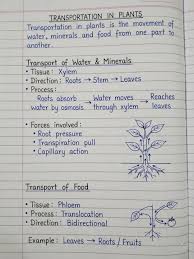 TRANSPORTATION IN PLANTS
Transportation in plants is the movement of
water, minerals and food from one part to
another.
Transport of Water & Minerals
• Tissue : Xylem
• Direction : Roots → Stem → Leaves
• Process :
Roots absorb → Water moves → Reaches
water by osmosis through xylem leaves
• Forces involved :
• Root pressure
• Transpiration pull
• Capillary action
Transport of Food
• Tissue : Phloem
• Process : Translocation
• Direction : Bidirectional
Example : Leaves → Roots / Fruits